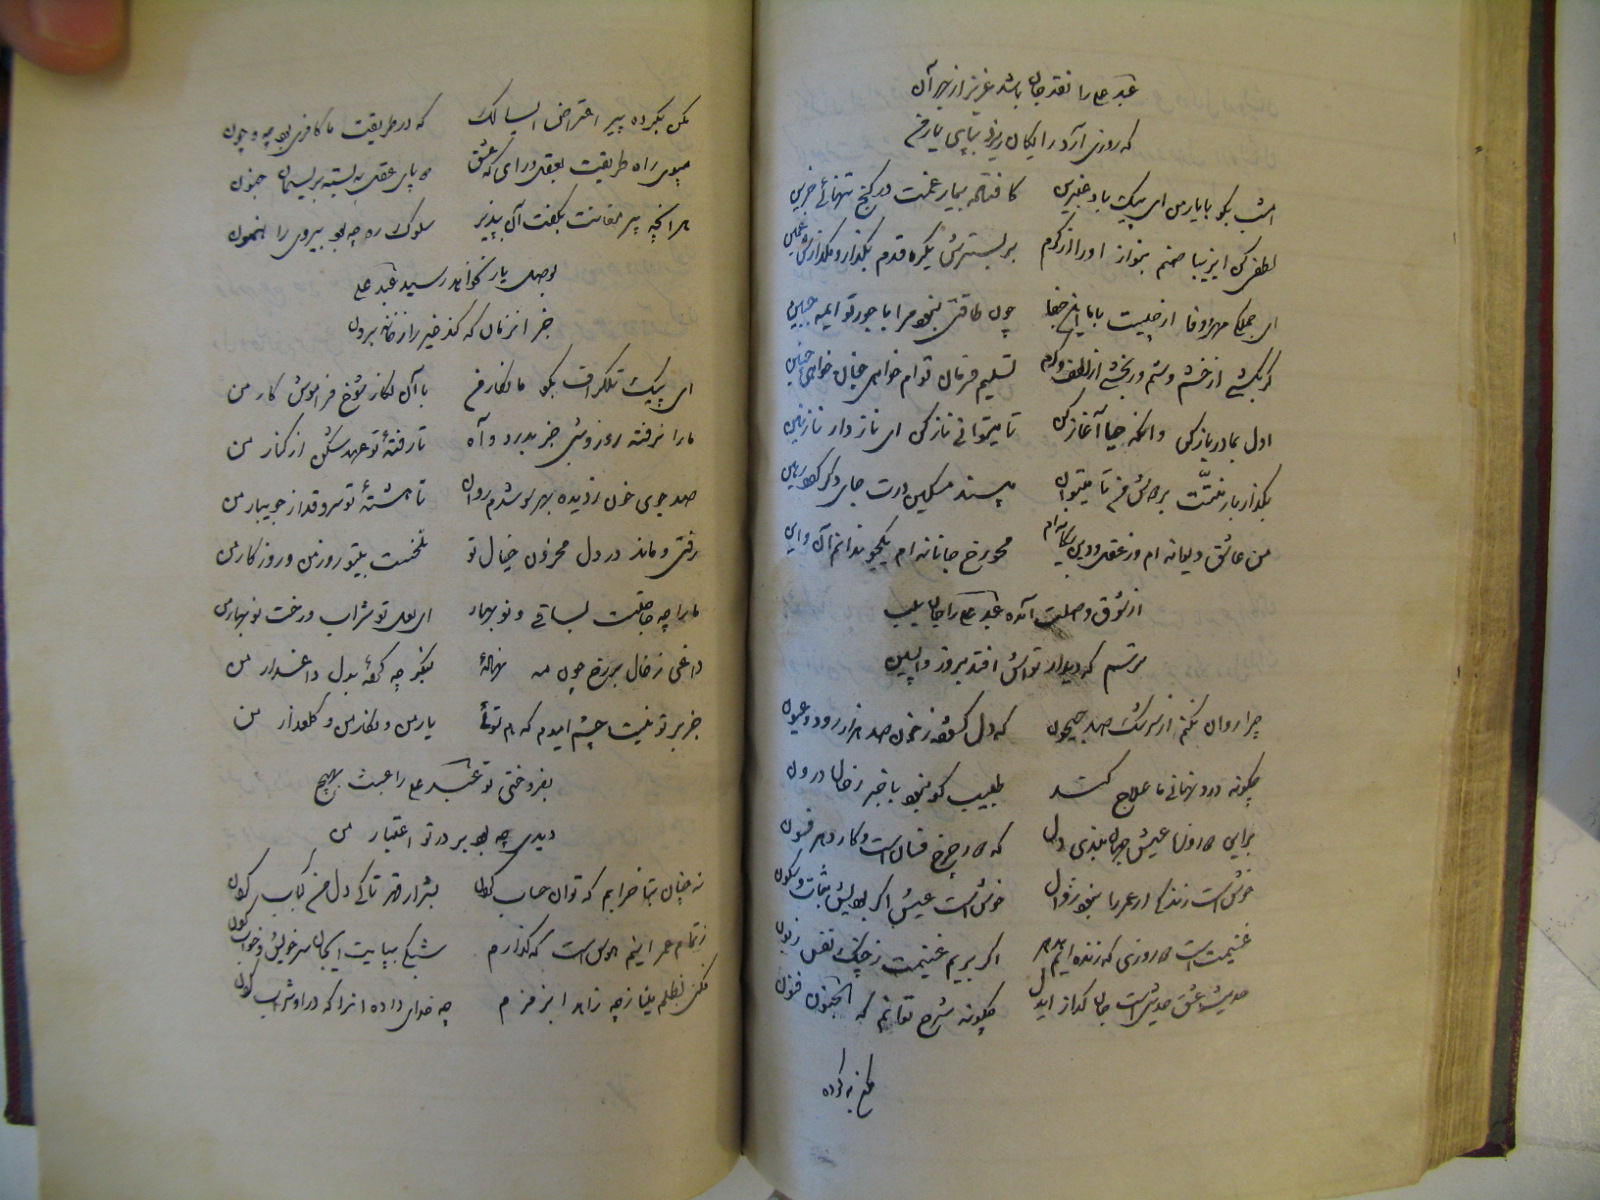 عبدعلی را نقد جان باشد عزیز از بهر آن
که روزی آرد رایگان ریزد بپای یار من
امشب بکو با یار من ای پیک باد عنبرین کافتاده بیمار غمت در کنج تنهائی حزین
لطفی کن ای زیبا صنم بنواز او را از کرم بر بسترش یکره قدم بگذار و مگذارش غمین
ای جملکی مهر و وفا از چیست با ما این جفا چون طاقتی نبود مرا با جور تو ای مه جبین
گر بکشی از خشم و ستم ور بخشی از لطف و کرم تسلیم فرمان توام خواهی چنان خواهی چنین
اول بما در باز کن وانکه جفا آغاز کن تا میتوانی ناز کن ای ناز دار نازنین
بگذار بار منتت بر جانش من تا میتوان مپسند مسکین درت جای دگر
من عاشق دیوانه ام وز عقل و دین بیکانه ام محو رخ جانانه ام یکجو ندانم آن و این
از شوق وصلت آمده عبدعلی را جان بلب
ترسم که دیدار تواش افتد بروز واپسین
چرا روان نکنم از سرشک صد جیحون که دل گرفته ز خون صد هزار رود و عیون
چگونه درد نهانی ما علاج کند طبیب کو نبود با خبر ز حال درون
برای دو روزه عیش جهان مبندی دل که کار چرخ فسانست و کار دهر فسون
خوش است زندگی ار عمر را نبود زوال خوش است عیش اگر بودیش ثبات و سکون
غنیمت است دو روزی که زنده ایم بدهر اگر بریم غنیمت ز چنگ نفس زبون
حدیث عشق حدیثی است جان گداز ایدل چگونه شرح توانم که الجنون فنون
مکن نکرده پیر اعتراض ای سالک که در طریقت ما کافری بود چه و چون
مپوی راه طریقت بعقل ورای که عشق دو پای عقل به بسته بریسمان جنون
هر آنچه پیر مغانت بگفت آن بپذیر سلوک ره چه بود پیروی راهنمون
بوصل یار نخواهد رسید عبدعلی
جز آنزمان که کند غیر را ز خانه برون
ای پیک تلگراف بگو با نگار من با آن نگار شوخ فراموش کار من
ما را نرفته روز و شبی جز بدرد و آه تا رفتهٔ تو عهد شکن از کنار من
صد جوی خون ز دیده بهر سو شدم روان تا هشتهٔ تو سرو قد از جویبار من
رفتی و ماند در دل محزون خیال تو تلخست بیتو روز من و روزگار من
ما را چه حاجتست بساقی و نو بهار ای لعل تو شراب و رخت نوبهار من
داغی ز خال بر رخ چون مه نهادهٔ بنگر چه کردهٔ بدل داغدار من
جز بر تو نیست چشم امیدم که هم توئی یار من و نگار من و گلعذار من
بفروختی تو عبدعلی را عبث بهیچ
دیدی چه بود بر در تو اعتبار من
نه چنان بتا خرابم که توان حساب کردن بشرار قهر تا کی دل من کباب کردن
ز تمام عمر اینم هوس است که گذارم شبکی بپایت ایجان سر خویش و خواب کردن
چه خدای داده آنرا که در او شراب کردن